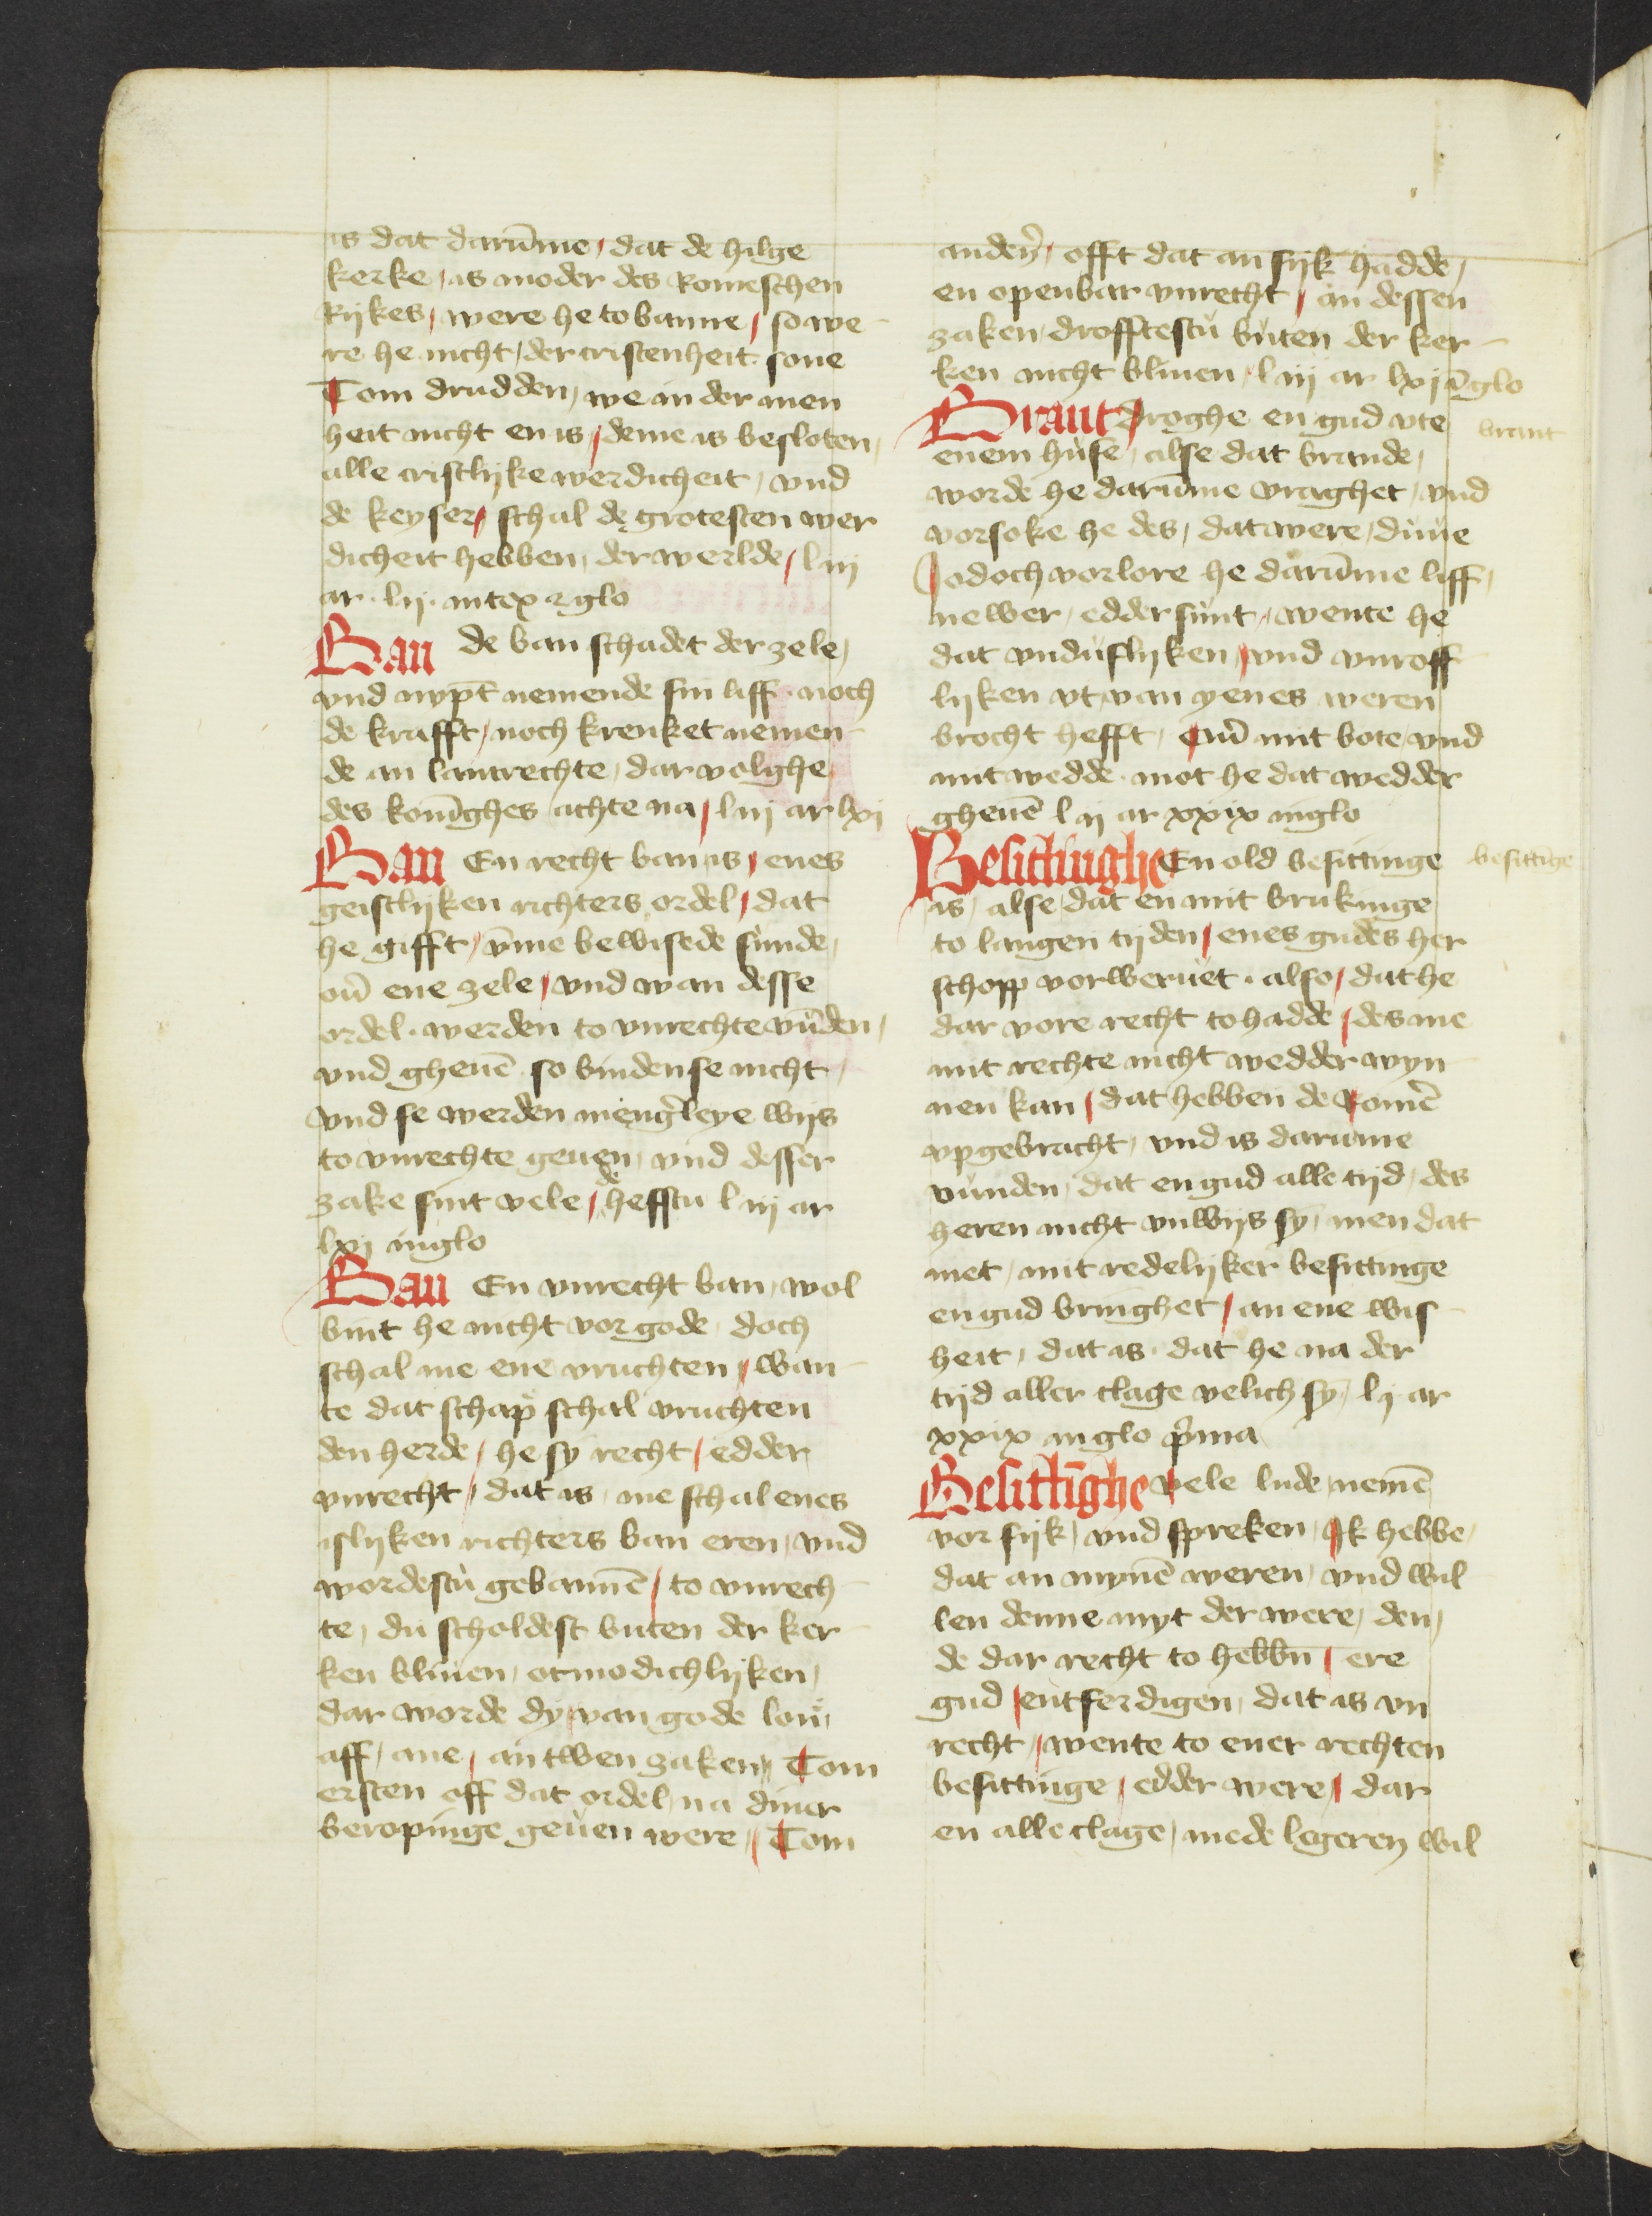 is dat darūme / dat de hilge
kerke / as moder des Romeschen
Rijkes / were he to banne / so we-
re he nicht / der cristenheit sone
Tom drudden / we in der men
heit nicht en is / deme is besloten /
alle cristlijke werdicheit / vnd
de keyser / schal de grotesten wer
dicheit hebben / der werlde / l iij
ar · lij · in tex ⁊ glo
Ban de ban schadet der zele /
vnd nypt nemende sin liff · noch
de krafft / noch krenket nemen-
de an lantrechte / dar volghe
des konīghes achte na / l iij ar lxij
Ban En recht ban is / enes
geistlijken richters ordel / dat
he gifft / vme bewisede sunde /
ou̅ ene zele / vnd wan desse
ordel · werden to vnrechte vūden /
vnd gheuē so binden se nicht /
vnd se werden mengerleye wijs
to vnrechte geuen / vnd desser
zake sint vele / de hefstu l iij ar
lxij in glo
Ban En vnrecht ban / wol
bint he nicht vor gode / doch
schal me ene vruchten / wan-
te dat schap schal vruchten
den herde / he sy recht / edder
vnrecht / dat is / me schal enes
islijken richters ban eren / vnd
wordestu gebannē / to vnrech-
te / du scholdest buten der ker-
ken bliuen / otmodichlijken /
dar worde dy van gode lon /
aff / ane / an twen zaken // Tom
ersten off dat ordel / na diner
beropinge geuen were // Tom
andern̄ / offt dat an sijk hadde /
en openbar vnrecht / in dessen
zaken / drofftestu buten der ker-
ken nicht bliuen / l iij ar lxij ī glo
Brant droghe en gud vte
brant
enem huse / alse dat brande /
worde he darūme vraghet / vnd
vorsoke he des / dat were / duue
Jodoch vorlore he darūme liff /
newer / edder sunt / wente he
dat vnduflijken / vnd vnroff
lijken vt van yenes weren
brocht hefft / Cuū mit bote / vnd
mit wedde · mot he dat wedder
gheuē l ij ar xxix in glo
Besittinghe En old besittinge
besittīge
is / alse / dat en mit brukinge
to langen tijden / enes gudes her
schopp vorweruet · also / dat he
dar vore recht to hadde / des me
mit rechte nicht wedder wyn-
nen kan / dat hebben de Romē
vpgebracht / vnd is darumme
vunden / dat en gud alle tijd / des
heren nicht vnwijs sy / men dat
met / mit redelijker besittinge
en gud bringhet / an ene wis-
heit / dat is · dat he na der
tijd aller clage velich sy / l ij ar
xxix in glo prima
Besittīghe vele lude / nemē
vor sijk / vnd spreken / Ik hebbe /
dat an mynē weren / vnd wil
len denne myt der were / den /
de dar recht to hebbn̄ / ere
gud / entferdigen / dat is vn
recht / wente to ener rechten
besittinge / edder were / dar
en alle clage / mede legeren wil